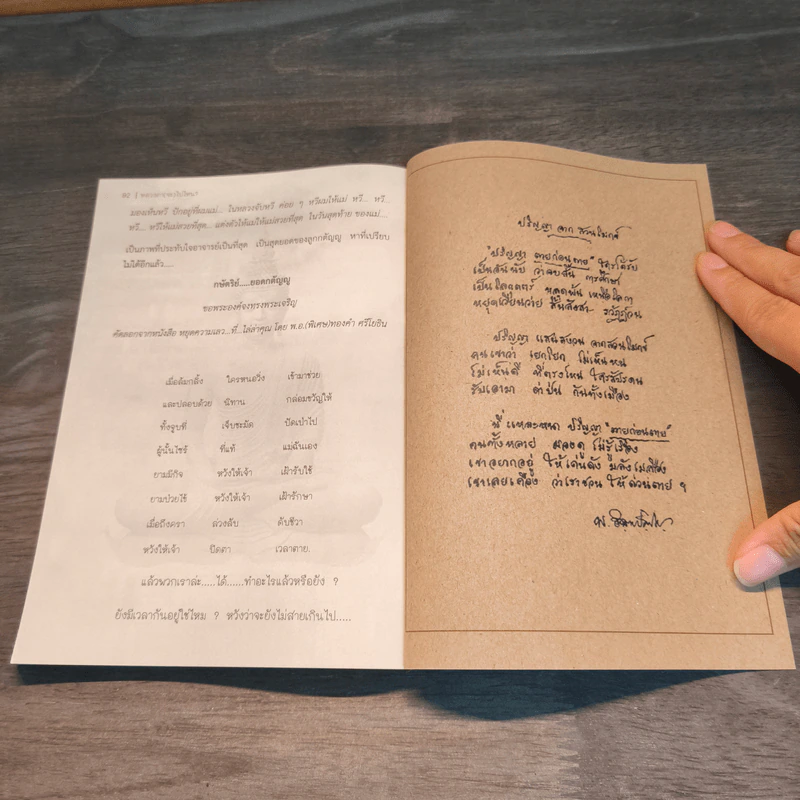 92 |
มองเห็นหวี ปักอยู่ที่ผมแม่... ในหลวงจับหวี ค่อย ๆ หวีผมให้แม่ หวี... หวี...
หวี... หวีให้แม่สวยที่สุด... แต่งตัวให้แม่ให้แม่สวยที่สุด ในวันสุดท้าย ของแม่...
เป็นภาพที่ประทับใจอาจารย์เป็นที่สุด เป็นสุดยอดของลูกกตัญญู หาที่เปรียบ
ไม่ได้อีกแล้ว....
กษัตริย์.....ยอดกตัญญู
ขอพระองค์จงทรงพระเจริญ
คัดลอกจากหนังสือ หยุดความเลว...ที่...ไล่ล่าคุณ โดย พ.อ.(พิเศษ)ทองคำ ศรีโยธิน
เมื่อล้มกลิ้ง ใครหนอวิ่ง เข้ามาช่วย
และปลอบด้วย นิทาน กล่อมขวัญให้
ทั้งจูบที่ เจ็บชะมัด ปัดเป่าไป
ผู้นั้นไซร้ ที่แท้ แม่ฉันเอง
ยามมีกิจ หวังให้เจ้า เฝ้ารับใช้
ยามป่วยไข้ หวังให้เจ้า เฝ้ารักษา
เมื่อถึงครา ล่วงลับ ดับชีวา
หวังให้เจ้า ปิดตา เวลาตาย.
แล้วพวกเราล่ะ.....ได้......ทำอะไรแล้วหรือยัง ?
ยังมีเวลากันอยู่ใช่ไหม ? หวังว่าจะยังไม่สายเกินไป.....
ปริญญา จาก สวนโมกข์
"ปริญญา ตายก่อนตาย" ใครได้รับ
เป็นอันนับ ว่าจบสิ้น การศึกษา
เป็นโลกุตตร์ หลุดพ้น เหนือโลกา
หยุดเวียนว่าย สิ้นสังสา- รวัฏฏ์วน
ปริญญา แสนสงวน จากสวนโมกข์
คนเขาว่า เยกโยก ไม่เห็นหน
ไม่เห็นดี ที่ตรงไหน ใครสัปดน
รับเอามา ด่าป่น กันทั้งเมือง
นี่แหละหนา ปริญญา "ตายก่อนตาย"
คนทั้งหลาย มองดู ไม่รู้เรื่อง
เขาอยากอยู่ ให้เด่นดัง มลังเมลือง
เขาเลยเคือง ว่าเราชวน ให้ด่วนตาย ๆ